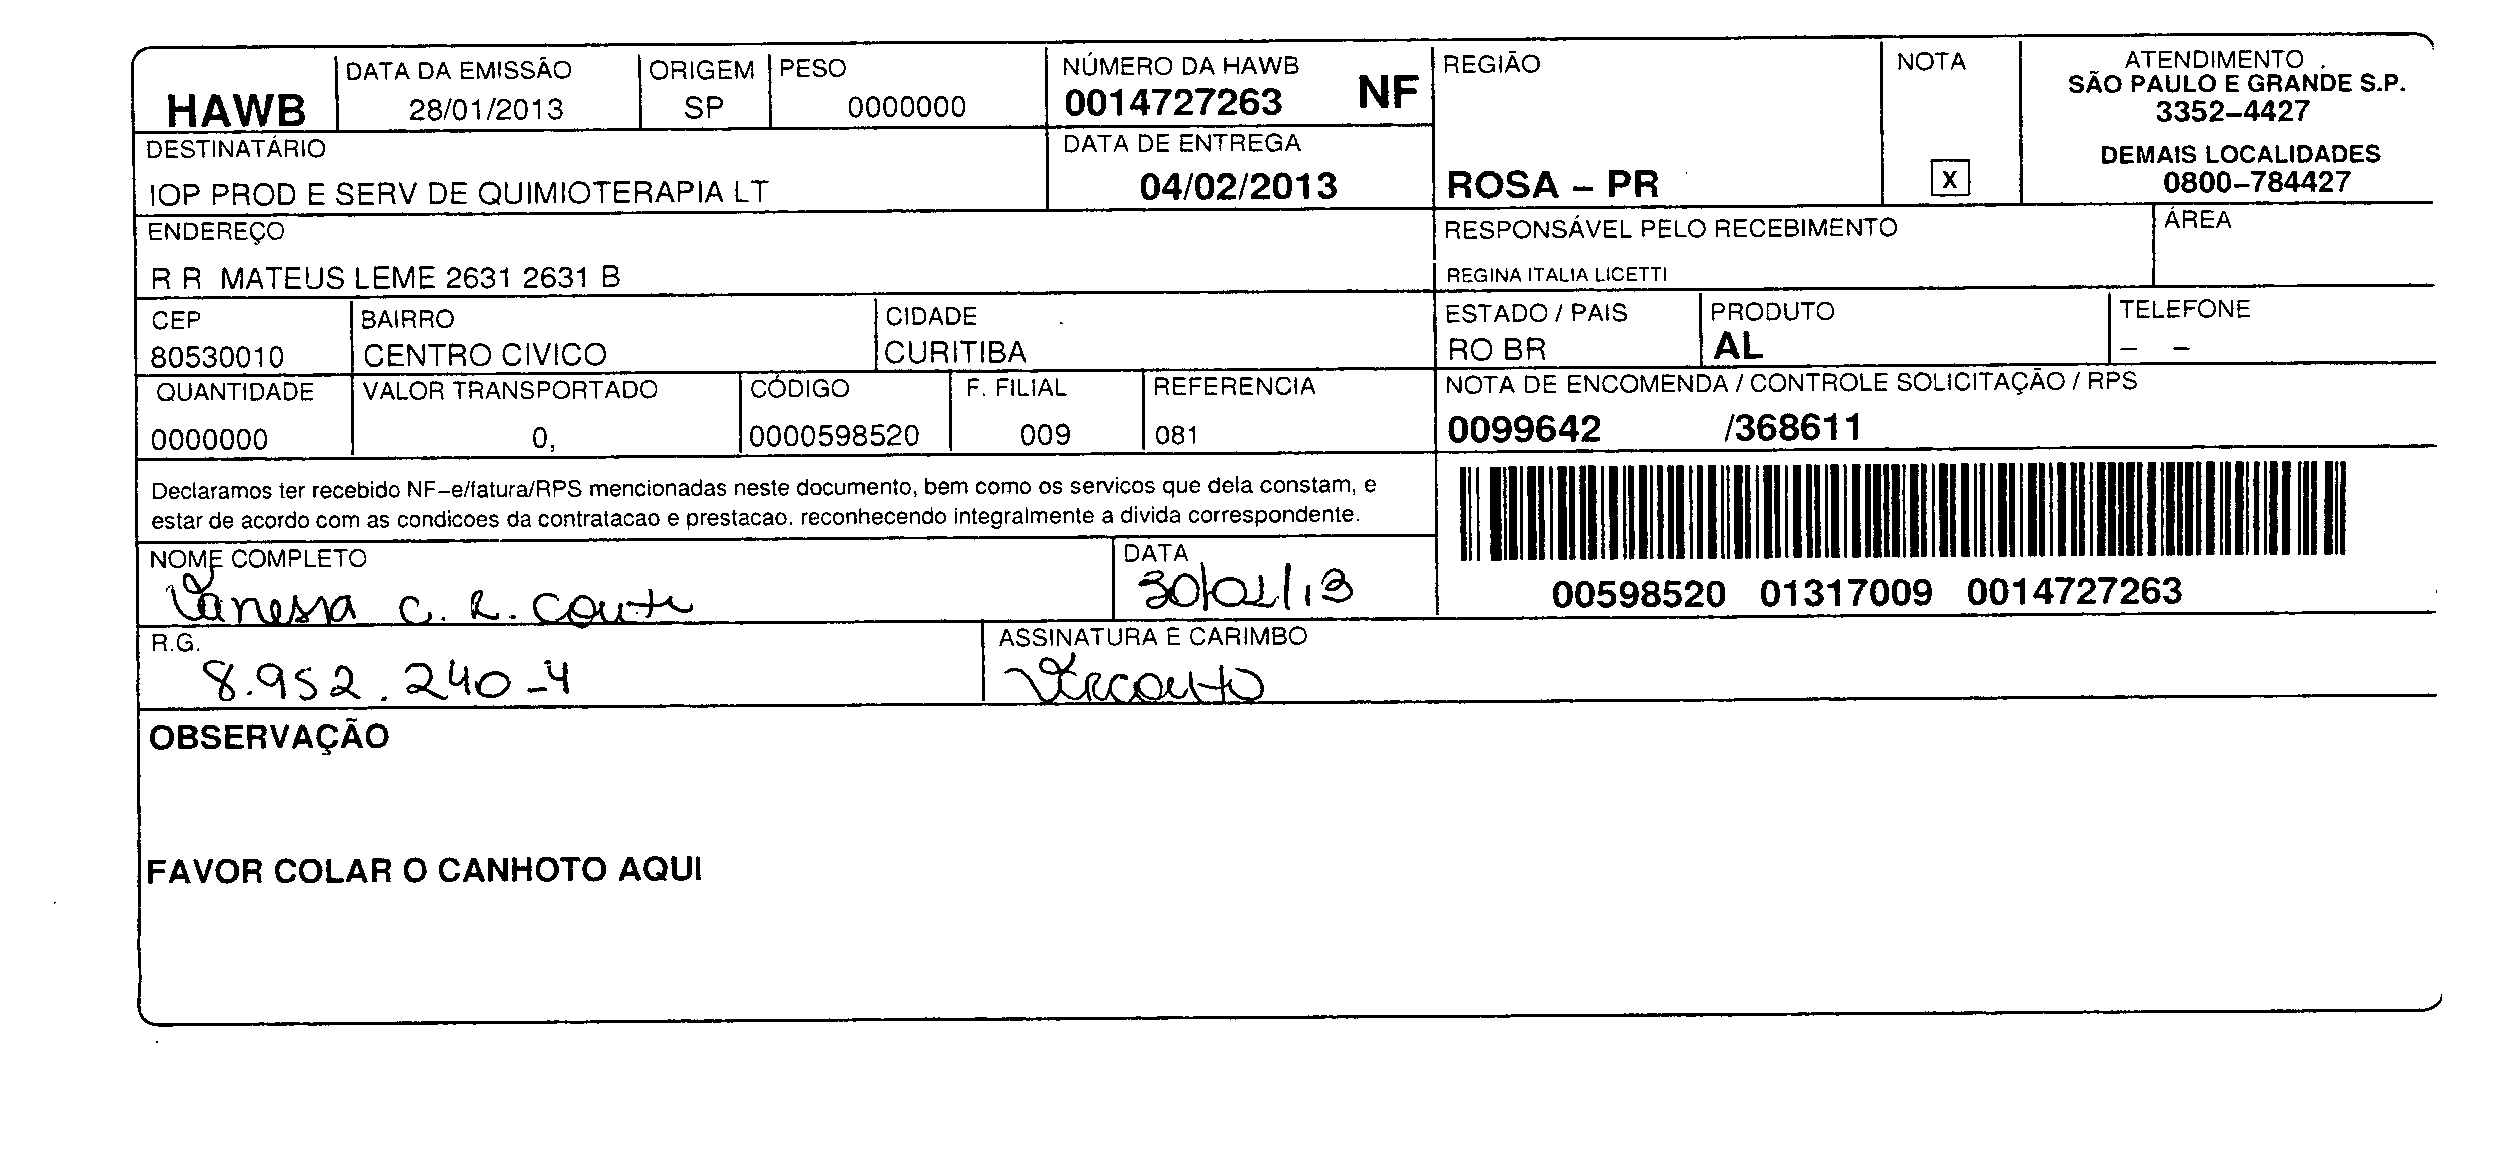 HAWB
DATA DA EMISSÃO
28/01/2013
ORIGEM
SP
PESO
0000000
NÚMERO DA HAWB
0014727263 NF
REGIÃO
ROSA – PR
NOTA
X
ATENDIMENTO
SÃO PAULO E GRANDE S.P.
3352–4427
DEMAIS LOCALIDADES
0800–784427
DESTINATÁRIO
IOP PROD E SERV DE QUIMIOTERAPIA LT
DATA DE ENTREGA
04/02/2013
ENDEREÇO
R R MATEUS LEME 2631 2631 B
RESPONSÁVEL PELO RECEBIMENTO
REGINA ITALIA LICETTI
ÁREA
CEP
80530010
BAIRRO
CENTRO CIVICO
CIDADE
CURITIBA
ESTADO / PAIS
RO BR
PRODUTO
AL
TELEFONE
– –
QUANTIDADE
0000000
VALOR TRANSPORTADO
0,
CÓDIGO
0000598520
F. FILIAL
009
REFERENCIA
081
NOTA DE ENCOMENDA / CONTROLE SOLICITAÇÃO / RPS
0099642 /368611
Declaramos ter recebido NF–e/fatura/RPS mencionadas neste documento, bem como os servicos que dela constam, e
estar de acordo com as condicoes da contratacao e prestacao. reconhecendo integralmente a divida correspondente.
00598520 01317009 0014727263
NOME COMPLETO
Vanessa C. R. Couto
DATA
30/01/13
R.G.
8.952.240-4
ASSINATURA E CARIMBO
VCRCouto
OBSERVAÇÃO
FAVOR COLAR O CANHOTO AQUI